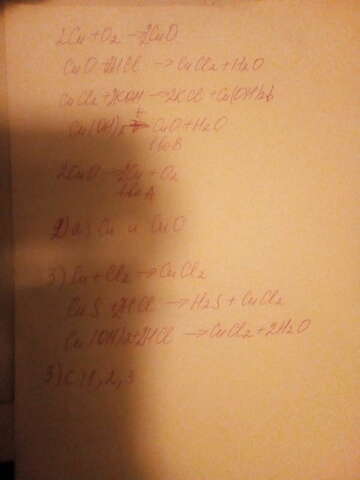 2Cu+O2→2CuO
CuO+2HCl→CuCl2+H2O
CuCl2+2KOH→2KCl+Cu(OH)2↓
Cu(OH)2 t→ CuO+H2O
2CuO→2Cu+O2
2) а) Cu и CuO
3) Cu+Cl2→CuCl2
CuS+2HCl→H2S+CuCl2
Cu(OH)2+2HCl→CuCl2+2H2O
3) C) 1,2,3